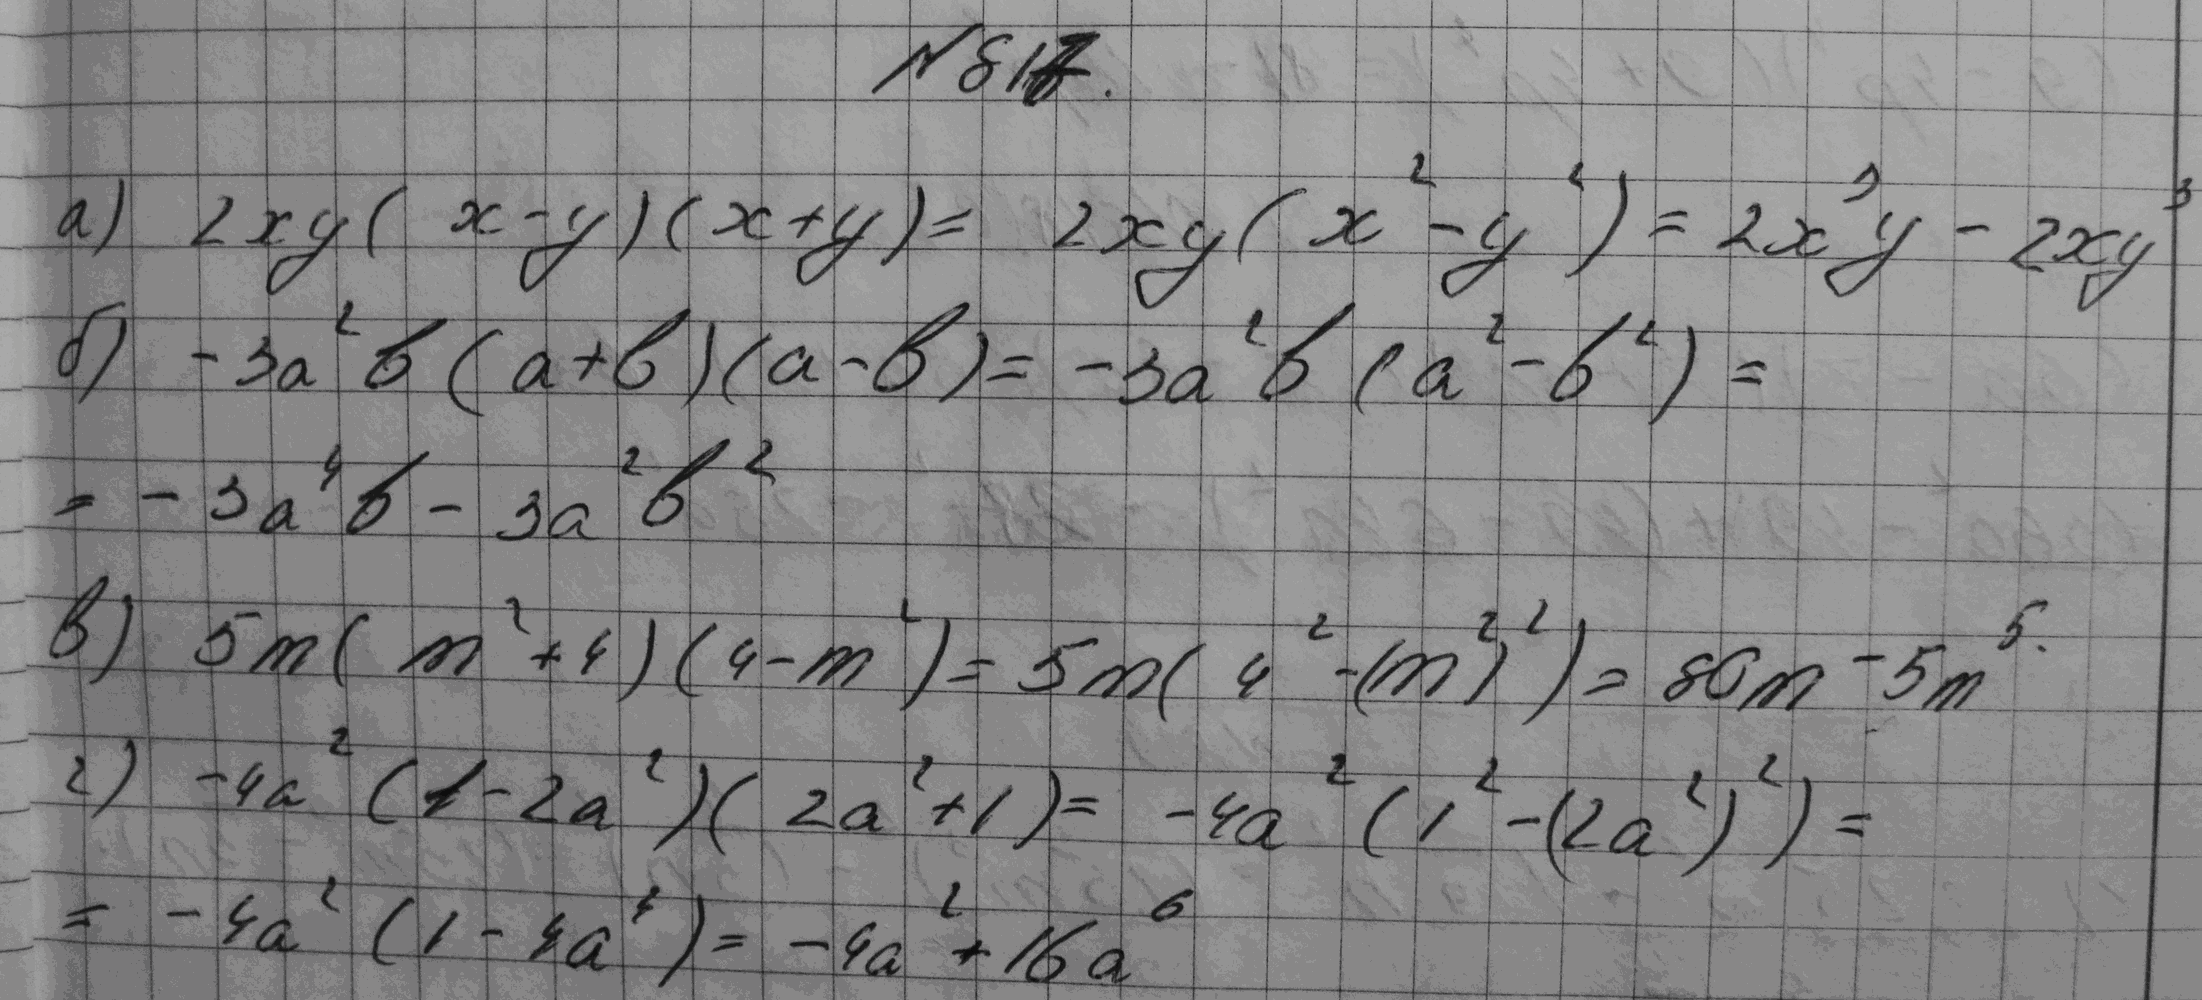 №817.
а) 2xy(x-y)(x+y)= 2xy(x²-y²)=2x³y-2xy³
б) -3a²b(a+b)(a-b)= -3a²b(a²-b²)=
= -3a⁴b-3a²b²
в) 5m(m²+4)(4-m²)=5m(4²-(m²)²)=80m-5m⁵.
г) -4a²(1-2a²)(2a²+1)= -4a²(1²-(2a²)²)=
= -4a²(1-4a⁴)= -4a²+16a⁶